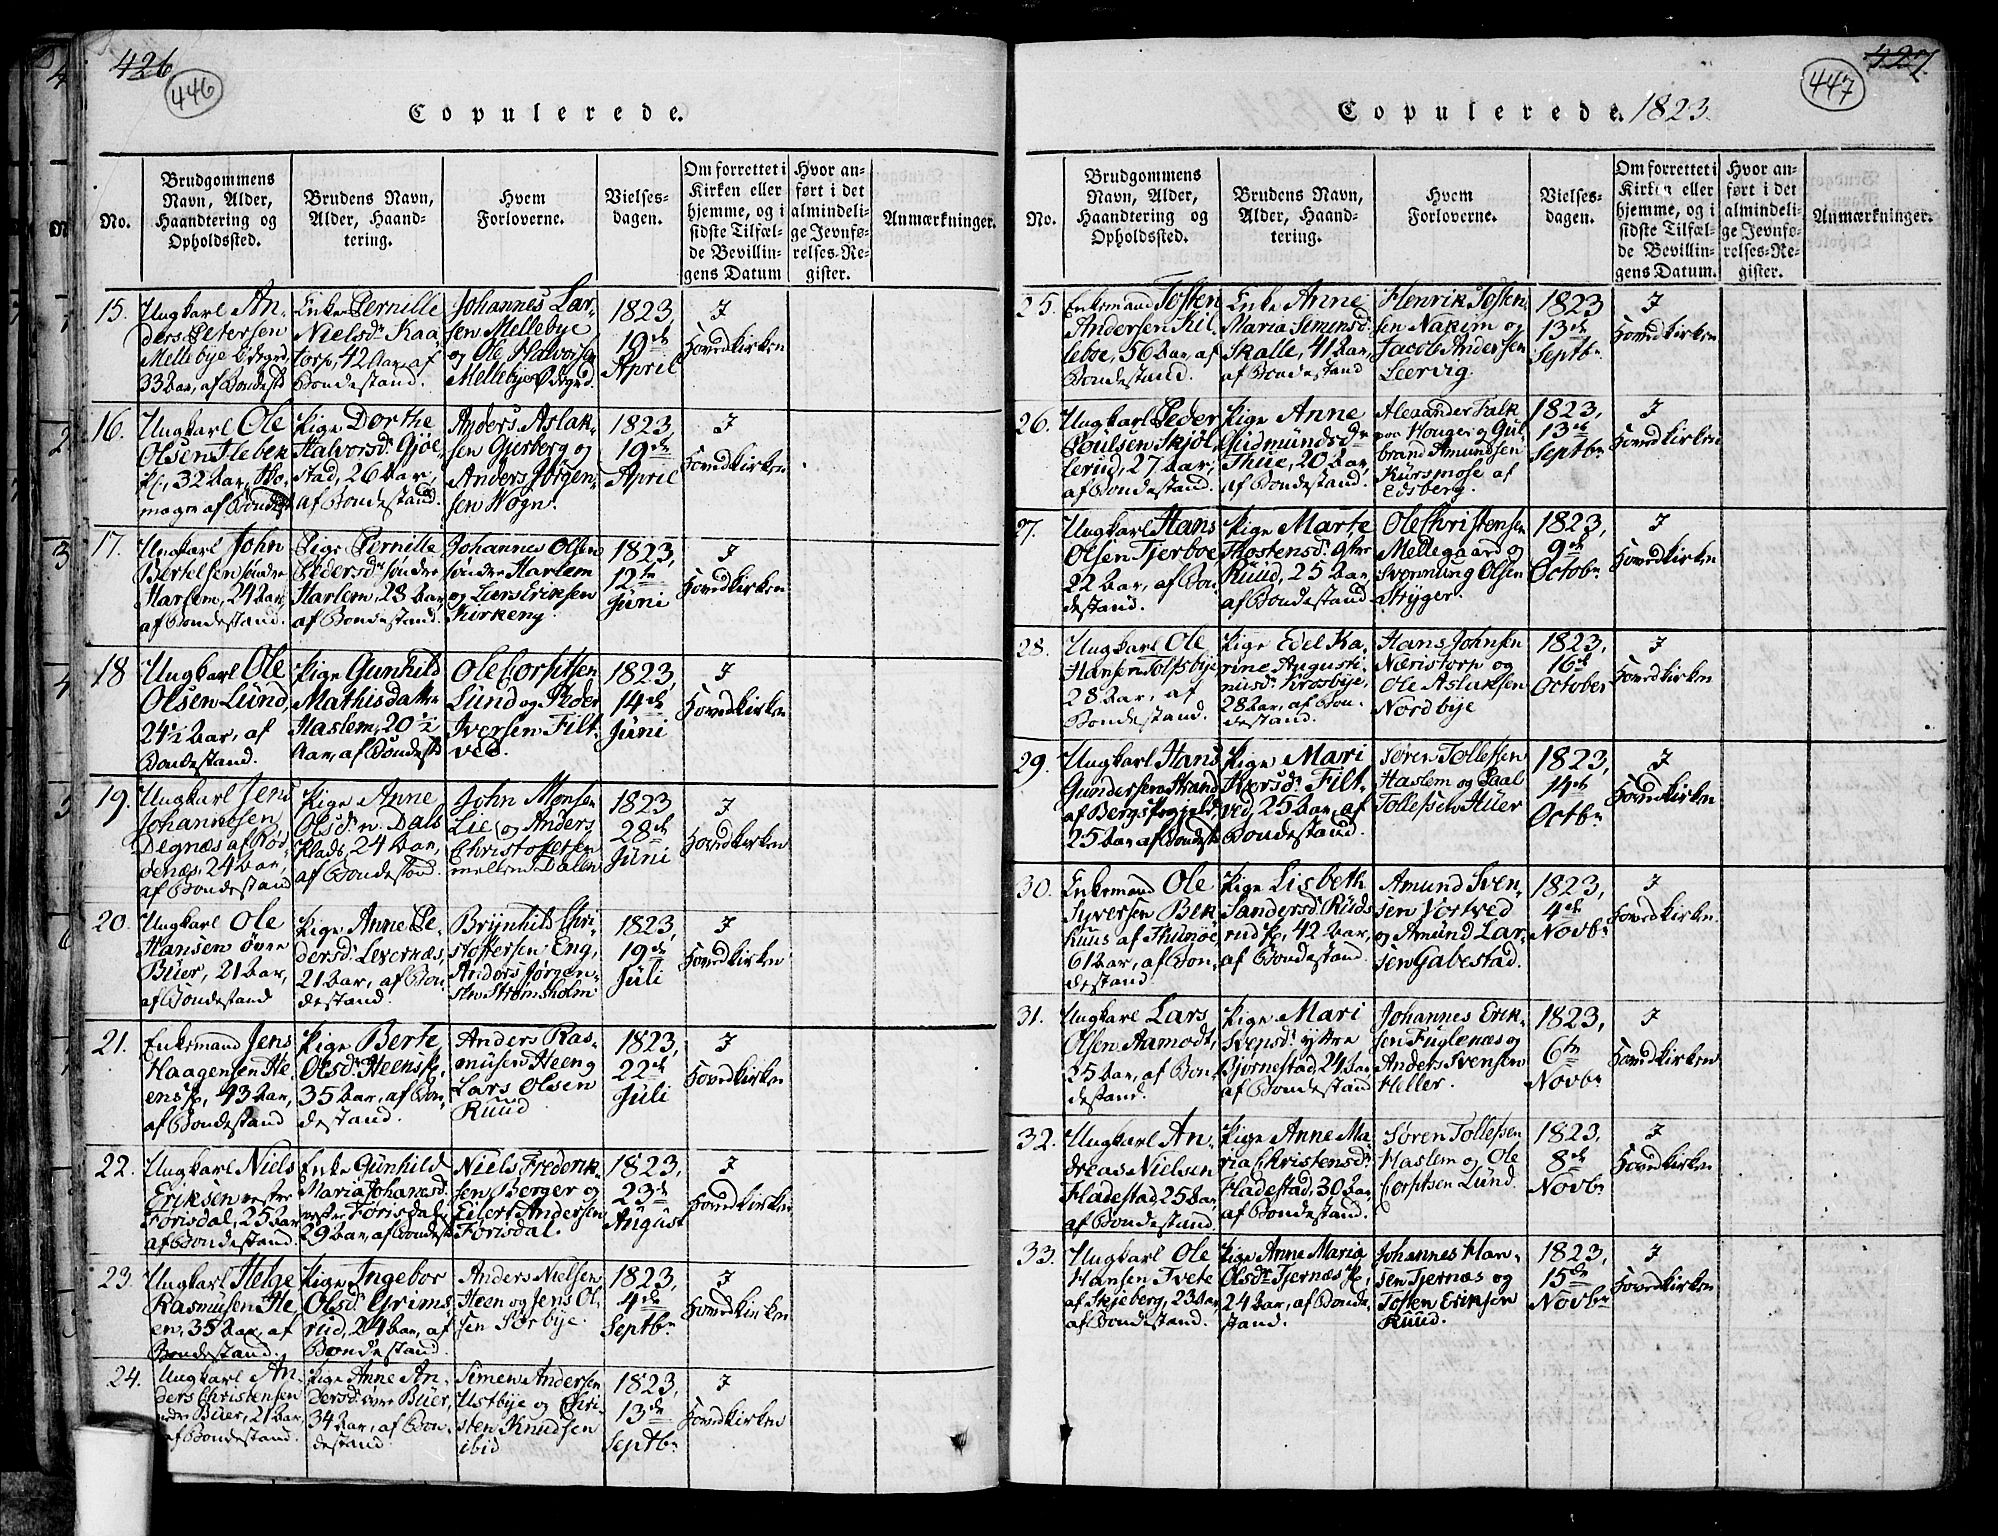 426
446
Copulerede.
No.
Brudgommens
Navn, Alder,
Haandtering og
Opholdssted.
Brudens Navn,
Alder, Haand-
tering.
Hvem
Forloverne.
Vielses-
dagen.
Om forrettet i
Kirken eller
hjemme, og i
sidste Tilfæl-
de Bevillin-
gens Datum
Hvor an-
ført i det
almindeli-
ge Jevnfø-
relses-Re-
gister.
Anmærkninger.
15.
Ungkarl An-
ders Petersen
Mellebye
33 Aar, af Bondestd
Enke Pernille
Nielsdr Kaa-
torp, 42 Aar, af
Bondestand.
Johannes Lar-
sen Mellebye
og Ole Halvorsen
Mellebye
1823,
19de
April
I
Hovedkirken
16.
Ungkarl Ole
Olsen Flebek
32 Aar,
af Bondest
Pige Dorthe
Halvorsdr Gjøl-
stad, 26 Aar,
af Bondestand.
Anders Aslak-
sen Gjerberg og
Anders Jørgen-
sen Wogn.
1823,
19de
April
I
Hovedkirken
17.
Ungkarl John
Bertelsen søndre
Harlem, 24 Aar,
af Bondestand.
Pige Pernille
Pedersdr søndre
Harlem, 28 Aar,
af Bondestand.
Johannes Olsen
søndre Harlem
og Lars Eriksen
Kirkeng.
1823,
12te
Juni
I
Hovedkirken
18
Ungkarl Ole
Olsen Lund,
24½ Aar, af
Bondestand.
Pige Gunhild
Mathisdatter
Haslem, 20½
Aar, af Bondestd
Ole Corfitsen
Lund og Peder
Iversen Filt-
ved.
1823,
14de
Juni
I
Hovedkirken
19.
Ungkarl Jens
Johannesen
Degnæs af Rø-
denæs, 24 Aar,
af Bondestand
Pige Anne
Olsdr n. Dals
Plads, 24 Aar,
af Bondestand.
John Monsen
Lie og Anders
Christoffersen
mellem Dalen
1823
28de
Juni
I
Hovedkirken
20.
Ungkarl Ole
Hansen øvre
Buer, 21 Aar,
af Bondestand
Pige Anne Pe-
dersdr Levernæs,
21 Aar, af Bon-
destand.
Brynhild Chri-
stoffersen Eng,
Anders Jørgen-
sen Strømsholm
1823,
19de
Juli
I
Hovedkirken
21.
Enkemand Jens
Haagensen He-
ens, 43 Aar,
af Bondestand
Pige Berte
Olsdr Heens,
35 Aar, af Bon-
destand.
Anders Ras-
musen Heen og
Lars Olsen
Ruud
1823,
22de
Juli
I
Hovedkirken
22.
Ungkarl Niels
Eriksen vestre
Torisdal, 25 Aar
af Bondestand.
Enke Gunhild
Maria Johansdr
vestre Torisdal,
29 Aar, af Bondestd
Niels Frederik-
sen Berger og
Eilert Andersen
Torisdal.
1823,
23de
August
I
Hovedkirken
23.
Ungkarl Helge
Rasmusen He-
en, 35 Aar, af
Bondestand.
Pige Ingebor
Olsdr Grims-
rud, 24 Aar, af
Bondestand.
Anders Nielsen
Heen og Jens Ol-
sen Sørbye.
1823,
4de
Septbr
I
Hovedkirken
24.
Ungkarl An-
ders Christensen
Buer, 21 Aar,
af Bondestand.
Pige Anne An-
dersdr øvre Buer,
34 Aar, af Bon-
destand
Simen Andersen
Ustbye og Chri-
sten Knudsen
ibid
1823,
13de
Septbr
I
Hovedkirken
427
447
Copulerede. 1823.
No.
Brudgommens
Navn, Alder,
Haandtering og
Opholdssted.
Brudens Navn,
Alder, Haand-
tering.
Hvem
Forloverne.
Vielses-
dagen.
Om forrettet i
Kirken eller
hjemme, og i
sidste Tilfæl-
de Bevillin-
gens Datum.
Hvor an-
ført i det
almindeli-
ge Jevnfø-
relses-Re-
gister.
Anmærkninger.
25.
Enkemand Tosten
Andersen Kil-
leboe, 56 Aar, af
Bondestand.
Enke Anne
Maria Simensdr
Skalle, 41 Aar,
af Bondestand
Henrik Tosten-
sen Nakim og
Jacob Andersen
Leervig.
1823
13de
Septbr
I
Hovedkirken
26.
Ungkarl Peder
Poulsen Skjøl-
lerud, 27 Aar,
af Bondestand.
Pige Anne
Gudmundsdr
Thue, 20 Aar,
af Bondestand.
Alexander Falk
paa Houger og Gul-
brand Amundsen
Kursmose af
Edsberg.
1823,
13de
Septbr
I
Hovedkirken
27.
Ungkarl Hans
Olsen Tjerboe,
22 Aar, af Bon-
destand.
Pige Marte
Thostensdr
Ruud, 25 Aar,
af Bondestand
Ole Christensen
Mellegaard og
Svennung Olsen
Stryger.
1823,
9de
Octobr
I
Hovedkirken
28.
Ungkarl Ole
Hansen Tolfsbye,
28 Aar, af
Bondestand.
Pige Edel Ka-
rine Augusti-
nusdr Krosbye,
28 Aar, af Bon-
destand.
Hans Johnsen
Næristorp og
Ole Aslaksen
Nordbye
1823,
16de
October
I
Hovedkirken
29.
Ungkarl Hans
Gundersen Strand
af Bergs Prgjeld,
25 Aar af Bondestd
Pige Mari
Iversdr Filt-
ved, 25 Aar, af
Bondestand.
Søren Tollefsen
Haslem og Paal
Tollefsen Huer
1823,
14de
Octbr
I
Hovedkirken
30.
Enkemand Ole
Syversen Bek-
huus af Thunøe,
61 Aar, af Bon-
destand
Pige Lisbeth
Sandersdr Ruds-
rud, 42 Aar,
af Bondestand
Amund Sven-
sen Vortved
og Amund Lar-
sen Gabestad.
1823,
4de
Novbr
I
Hovedkirken
31.
Ungkarl Lars
Olsen Aamodt,
25 Aar, af Bon-
destand.
Pige Mari
Svensdr yttre
Bjørnestad, 24 Aar
af Bondestand
Johannes Erik-
sen Fuglenæs og
Anders Svensen
Heller.
1823,
6te
Novbr
I
Hovedkirken
32.
Ungkarl An-
dreas Nielsen
Fladestad, 25 Aar,
af Bondestand.
Pige Anne Ma-
ria Christensdr
Fladestad, 30 Aar
af Bondestand.
Søren Tollefsen
Haslem og Ole
Corfitsen Lund.
1823,
8de
Novbr
I
Hovedkirken
33.
Ungkarl Ole
Hansen Tvete
af Skjeberg, 23 Aar
af Bondestand.
Pige Anne Maria
Olsdr Tjernæs,
24 Aar, af Bonde-
stand.
Johannes Han-
sen Tjernæs og
Tosten Eriksen
Ruud.
1823,
15de
Novbr
I
Hovedkirken